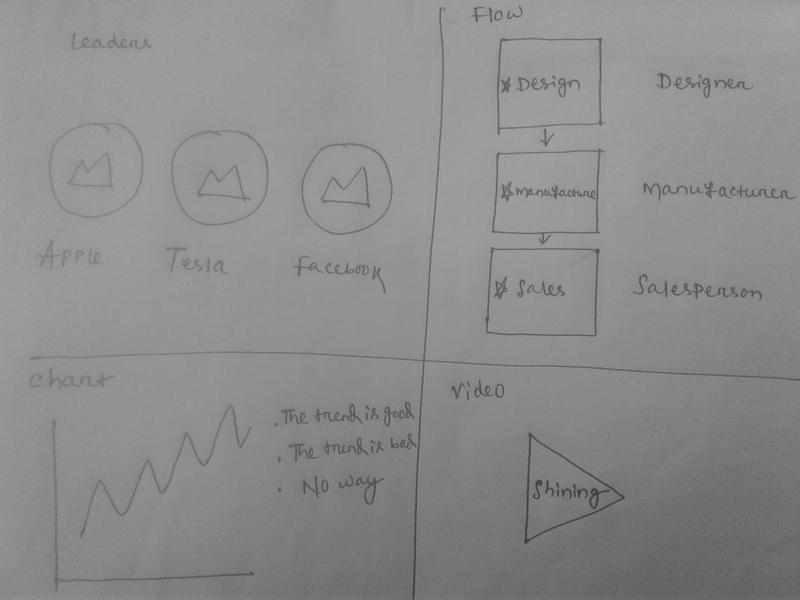 Leaders
Apple
Tesla
facebook
Flow
Design
Designer
Manufacture
Manufacturer
Sales
Salesperson
Chart
. The trend is good
. The trend is bad
. No way
Video
Shining